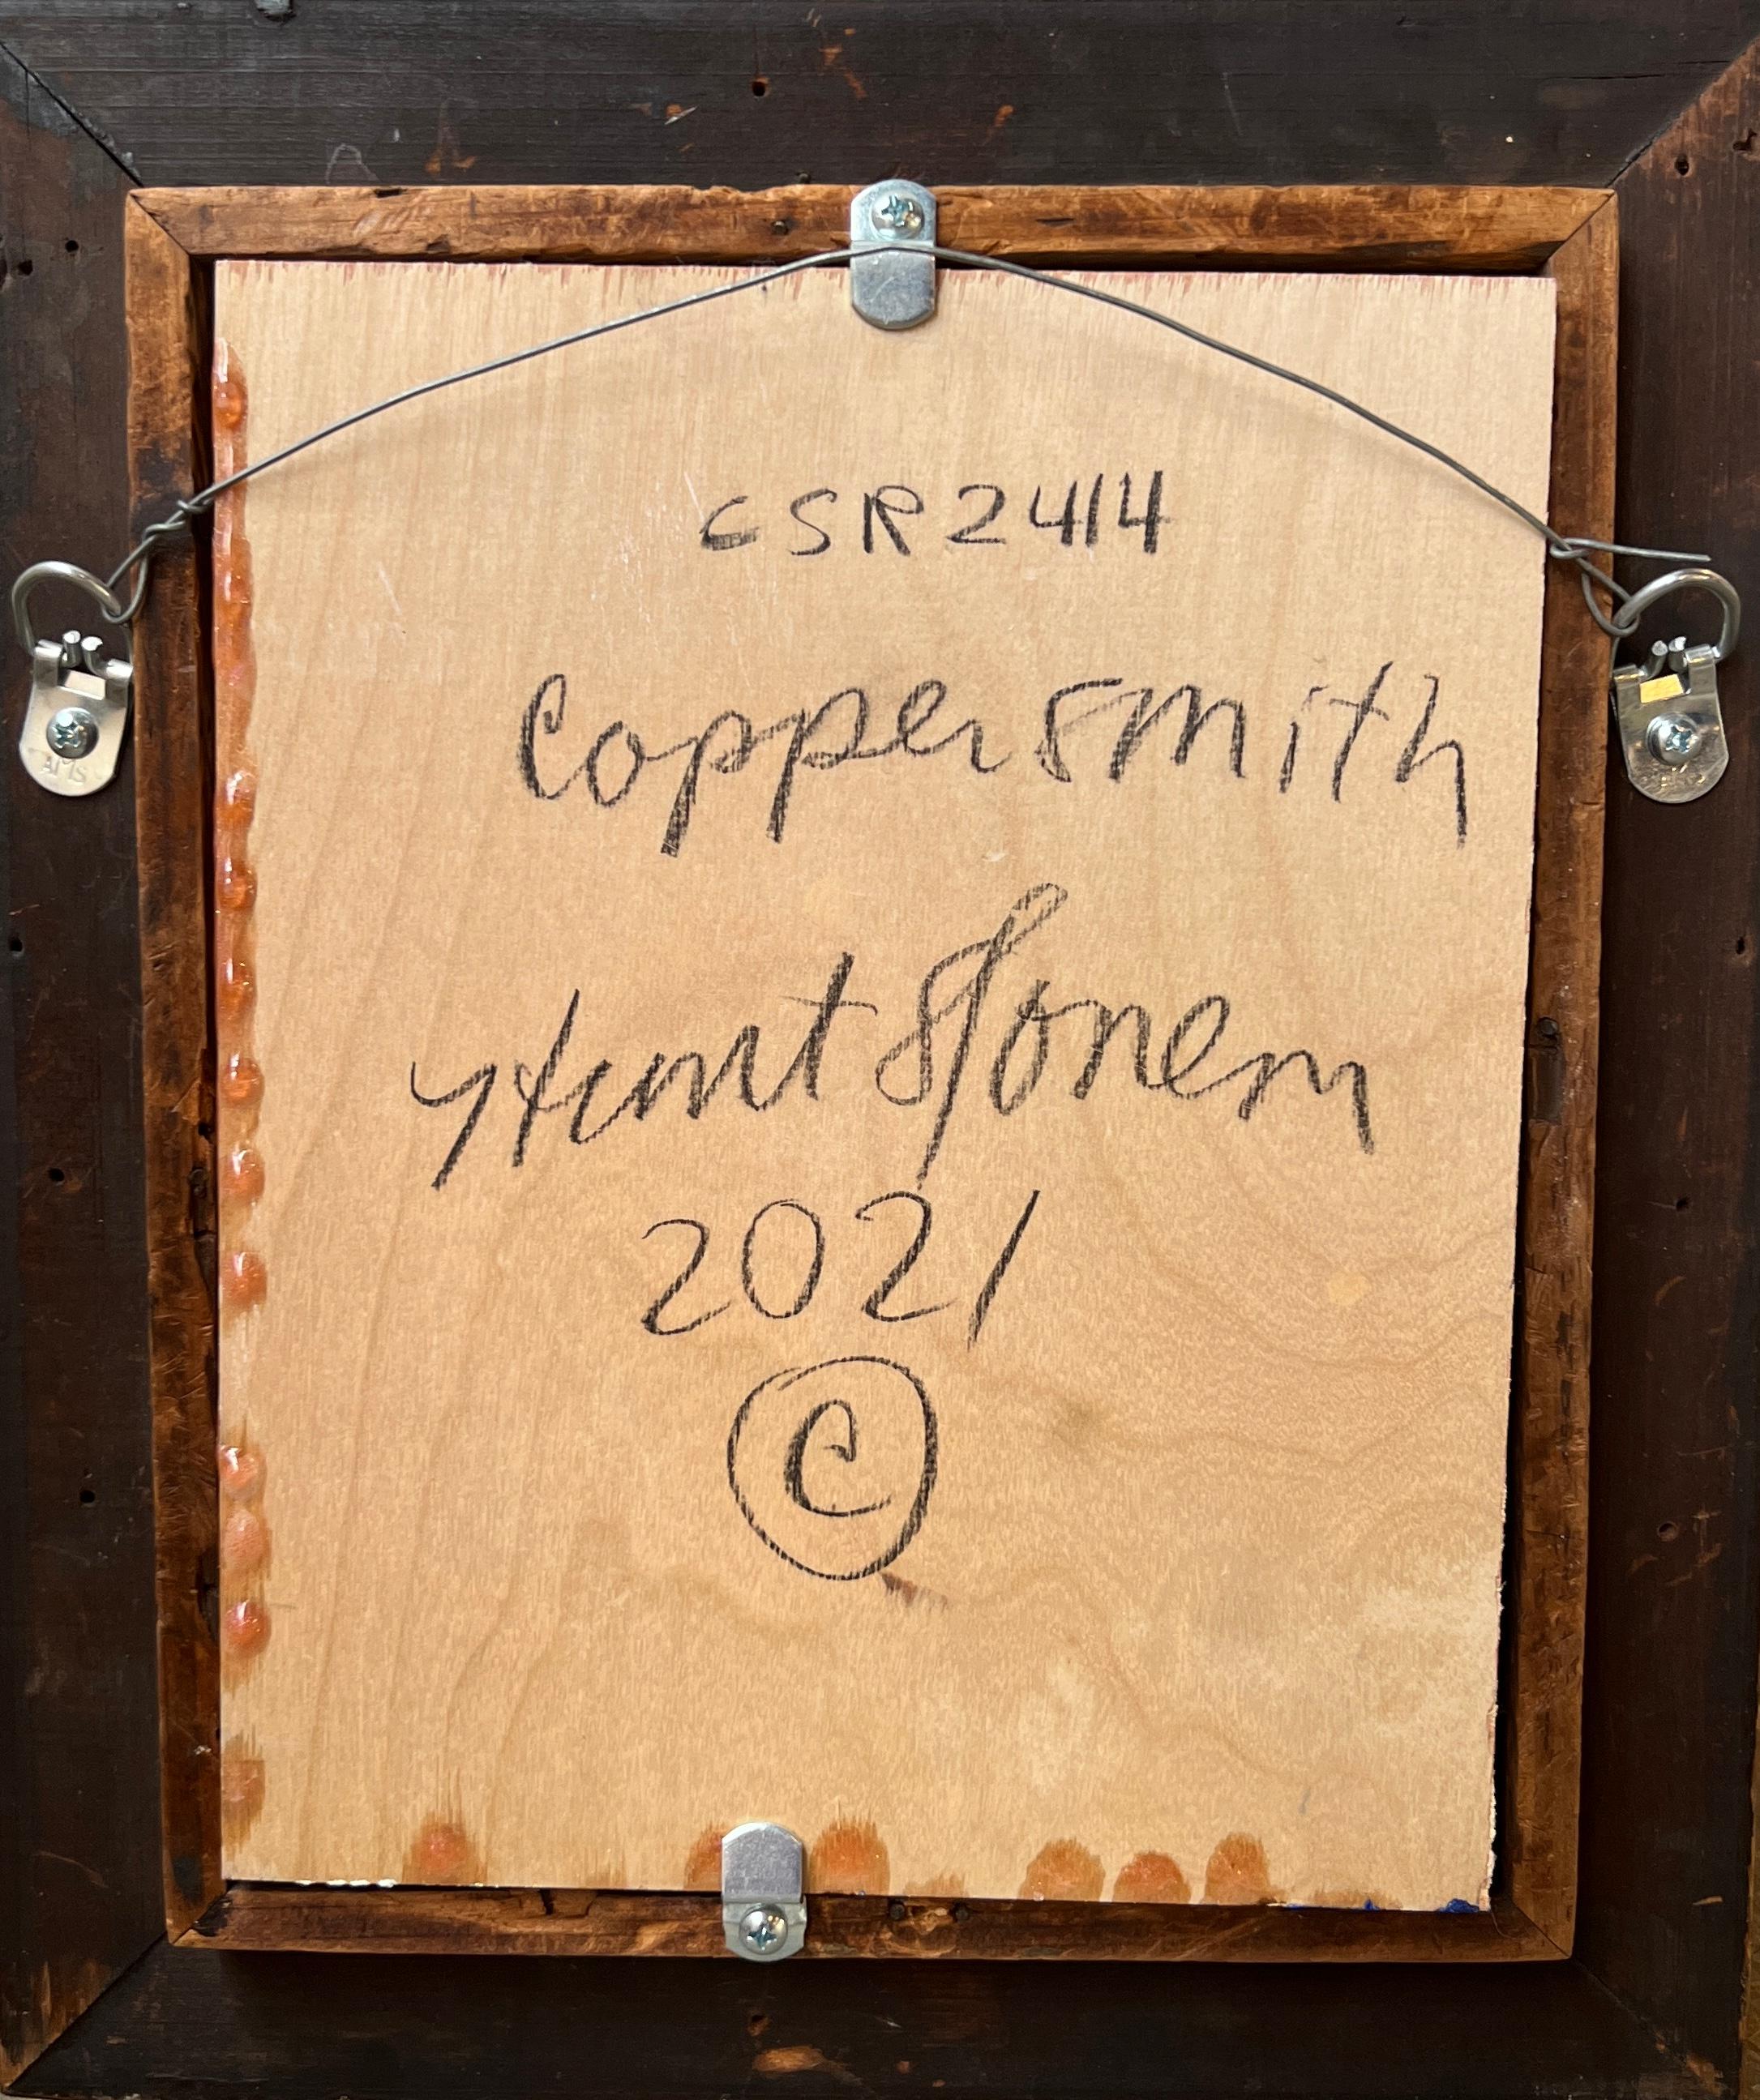 CSR2414
Coppersmith
Hunt Slonem
2021
©
AMS